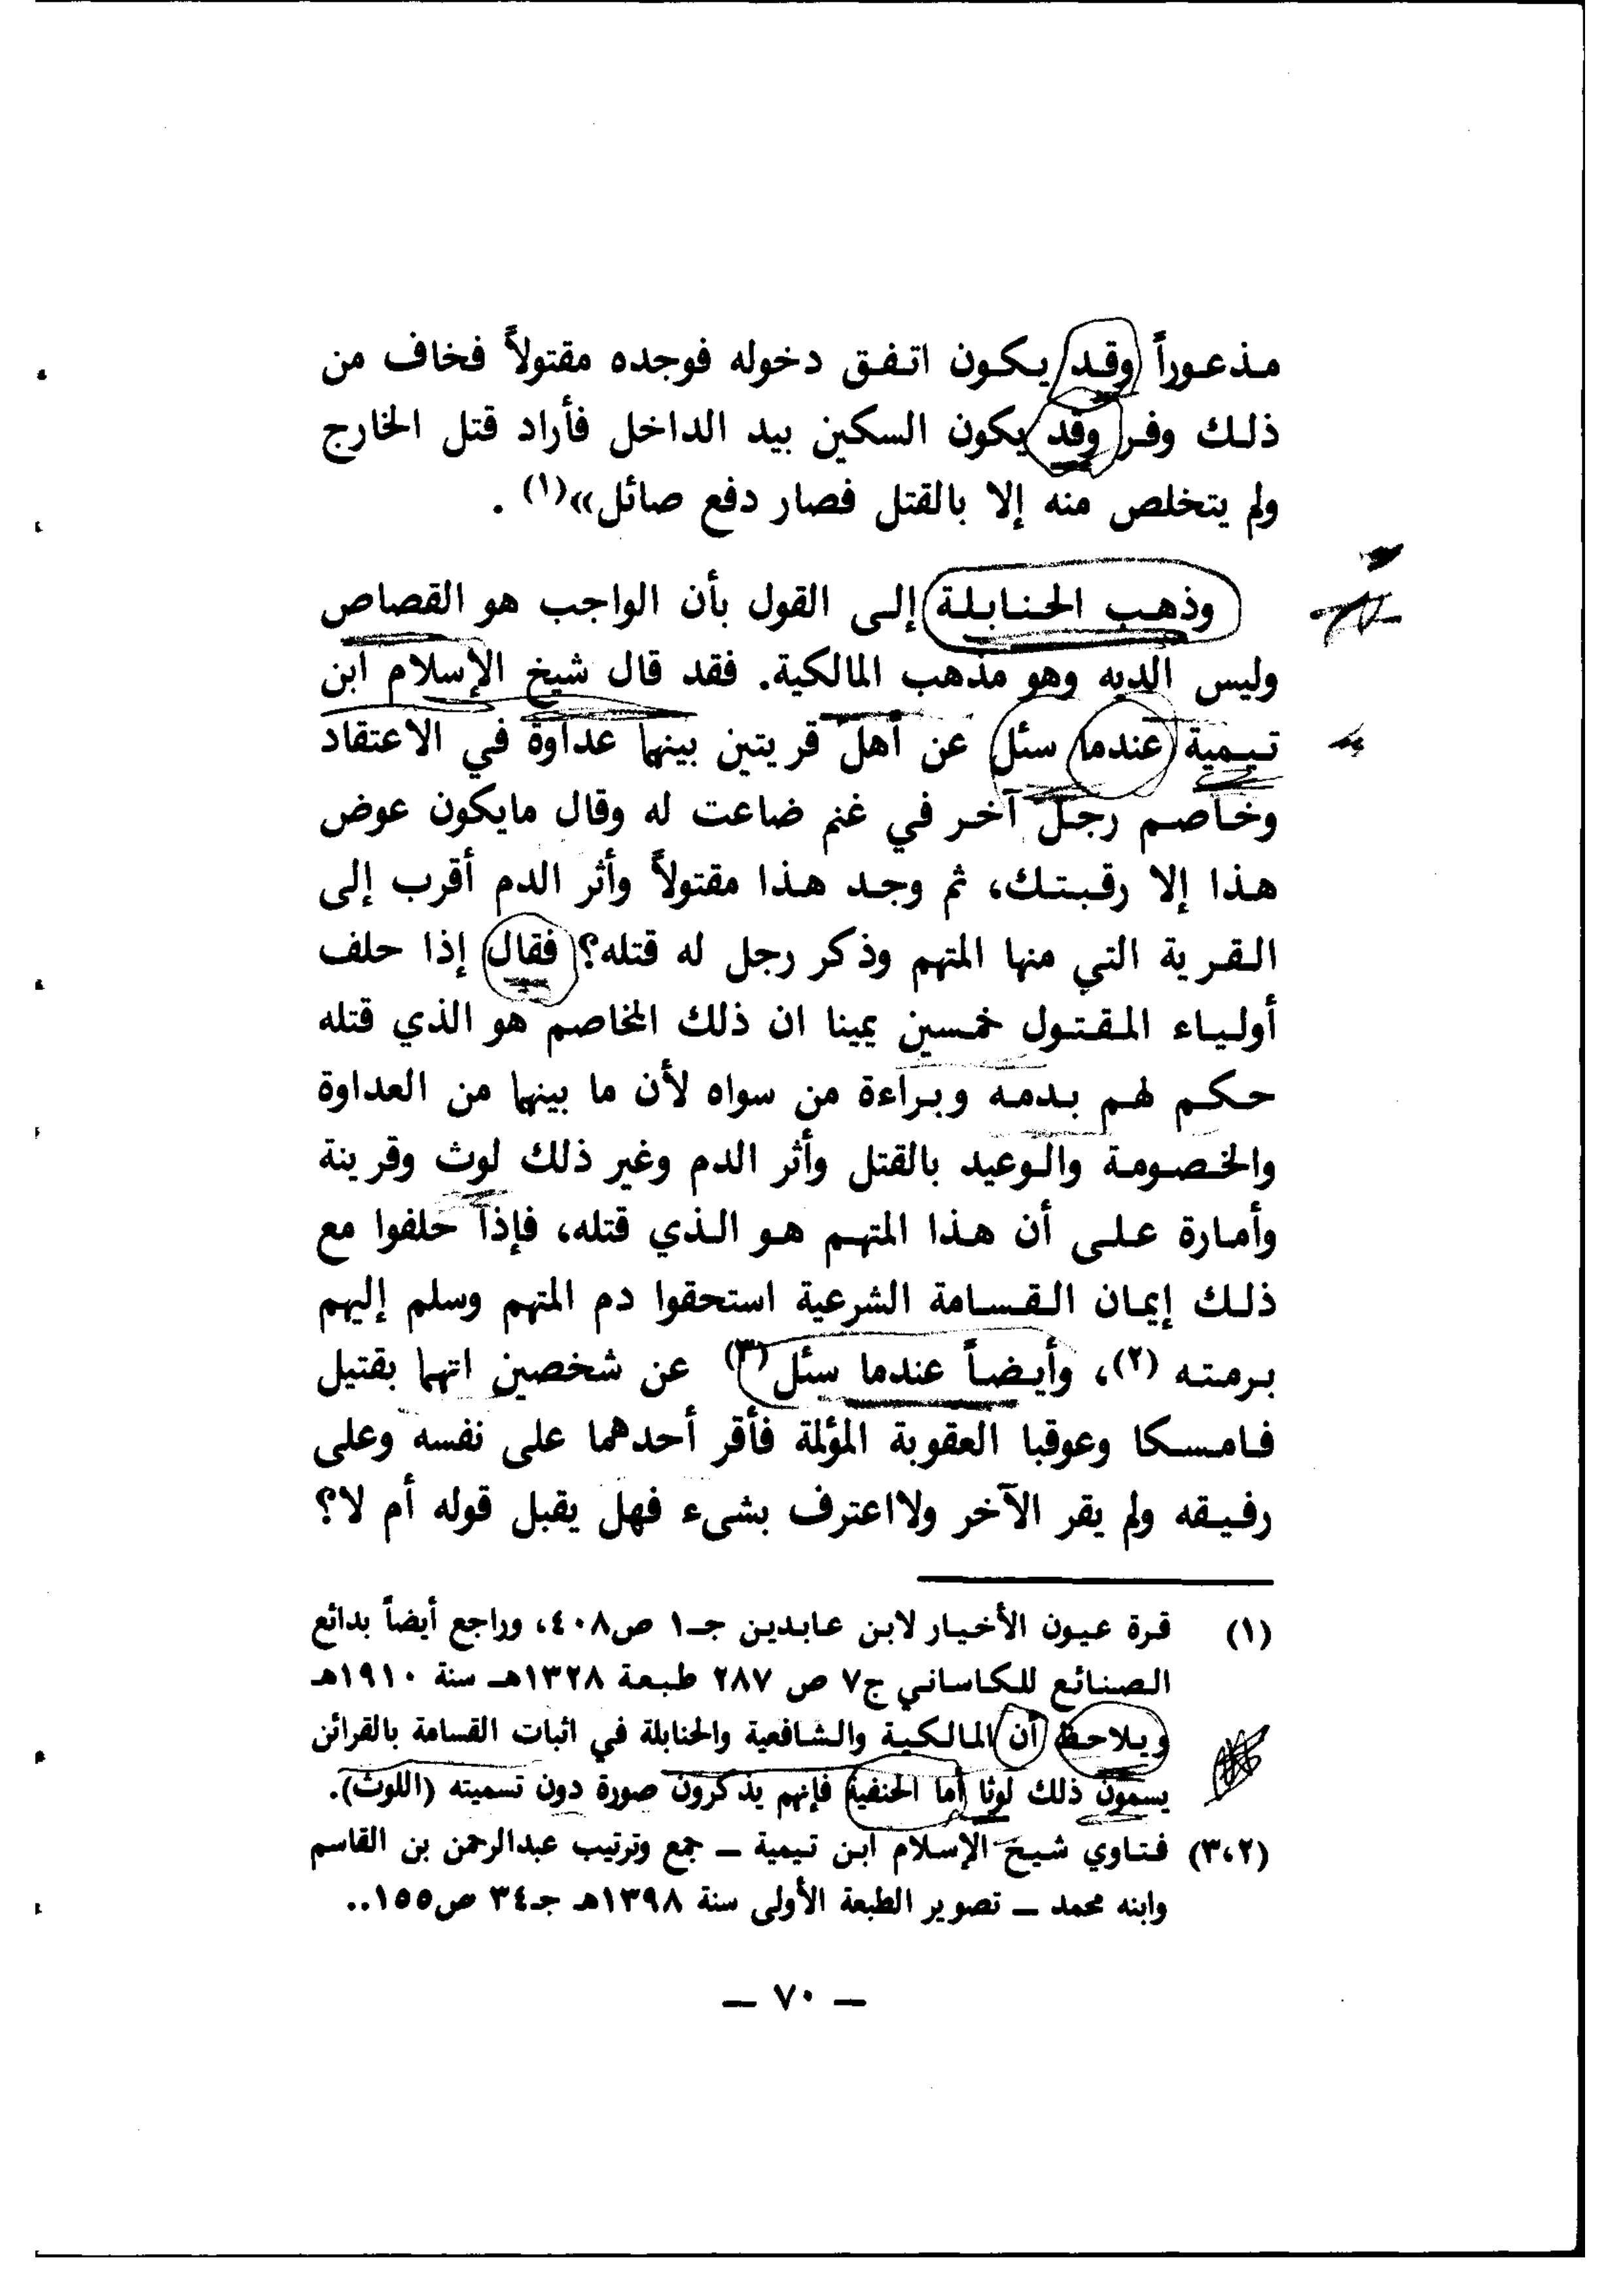 مذعوراً وقد يكون اتفق دخوله فوجده مقتولاً فخاف من
ذلك وفر وقد يكون السكين بيد الداخل فأراد قتل الخارج
ولم يتخلص منه إلا بالقتل فصار دفع صائل»(١) .
وذهب الحنابلة إلى القول بأن الواجب هو القصاص
وليس الديه وهو مذهب المالكية. فقد قال شيخ الإسلام ابن
تيمية عندما سئل عن أهل قريتين بينهما عداوة في الاعتقاد
وخاصم رجل آخر في غنم ضاعت له وقال مايكون عوض
هذا إلا رقبتك، ثم وجد هذا مقتولاً وأثر الدم أقرب إلى
القرية التي منها المتهم وذكر رجل له قتله؟ فقال إذا حلف
أولياء المقتول خمسين يمينا ان ذلك المخاصم هو الذي قتله
حكم لهم بدمه وبراءة من سواه لأن ما بينهما من العداوة
والخصومة والوعيد بالقتل وأثر الدم وغير ذلك لوث وقرينة
وأمارة على أن هذا المتهم هو الذي قتله، فإذا حلفوا مع
ذلك إيمان القسامة الشرعية استحقوا دم المتهم وسلم إليهم
برمته (٢)، وأيضاً عندما سئل(٣) عن شخصين اتهما بقتيل
فامسكا وعوقبا العقوبة المؤلمة فأقر أحدهما على نفسه وعلى
رفيقه ولم يقر الآخر ولااعترف بشىء فهل يقبل قوله أم لا؟
(١) قرة عيون الأخيار لابن عابدين جـ١ ص٤٠٨، وراجع أيضاً بدائع
الصنائع للكاساني ج٧ ص ٢٨٧ طبعة ١٣٢٨هـ سنة ١٩١٠هـ
ويلاحظ أن المالكية والشافعية والحنابلة في اثبات القسامة بالقرائن
يسمون ذلك لوثا أما الحنفية فإنهم يذكرون صورة دون تسميته (اللوث).
(٣،٢) فتاوي شيخ الإسلام ابن تيمية — جمع وترتيب عبدالرحمن بن القاسم
وابنه محمد — تصوير الطبعة الأولى سنة ١٣٩٨هـ جـ٣٤ ص١٥٥..
— ٧٠ —